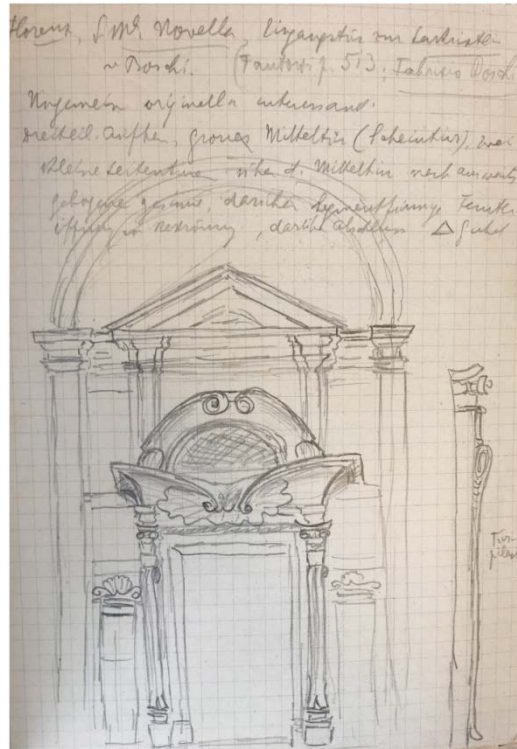 Florenz, S. Ma Novella, Eingangstür zur Sakristei
v. Boschi. (Fantozzi p. 513, Fabrizio Boschi
Ungemein originell u. interessant.
dreiteil. Aufbau, grosses Mitteltür (Scheintür), zwei
kleine Seitentüren über d. Mitteltür nach auswärts
gebogene darüber segmentförmige Fenster
darüber Abschluss △ Giebel
Tür